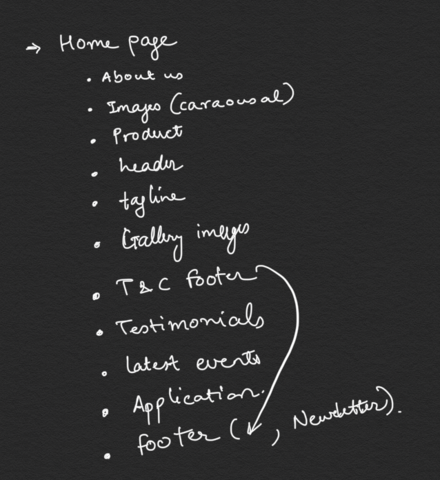 → Home page
• About us
• Images (caraousal)
• Product
• header
• tagline
• Gallery images
• T & C footer
• Testimonials
• Latest events
• Application.
• footer ( , Newsletter).